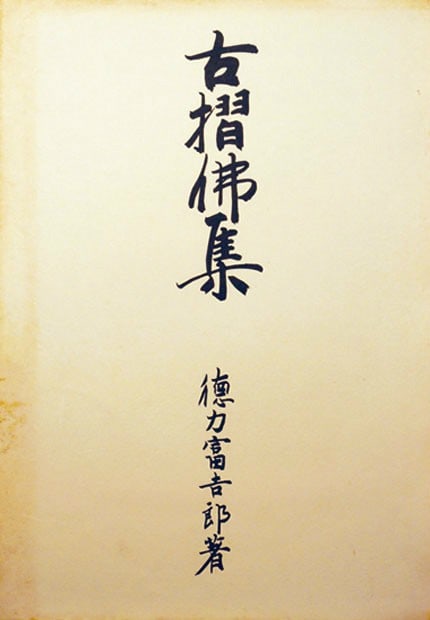 古摺佛集
德力富吉郎著